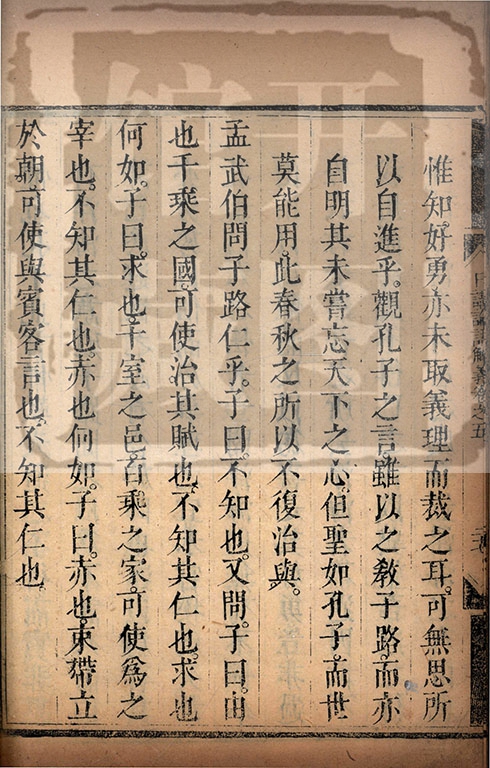 惟知好勇亦未取義理而裁之耳。可無思所
以自進乎。觀孔子之言。雖以之敎子路。而亦
自明其未嘗忘天下之心。但聖如孔子。而世
莫能用。此春秋之所以不復治與。
孟武伯問子路仁乎。子曰。不知也。又問。子曰。由
也千乘之國。可使治其賦也。不知其仁也。求也
何如。子曰。求也。千室之邑。百乘之家。可使爲之
宰也。不知其仁也。赤也何如。子曰。赤也。束帶立
於朝。可使與賓客言也。不知其仁也。
日講 解義卷之五